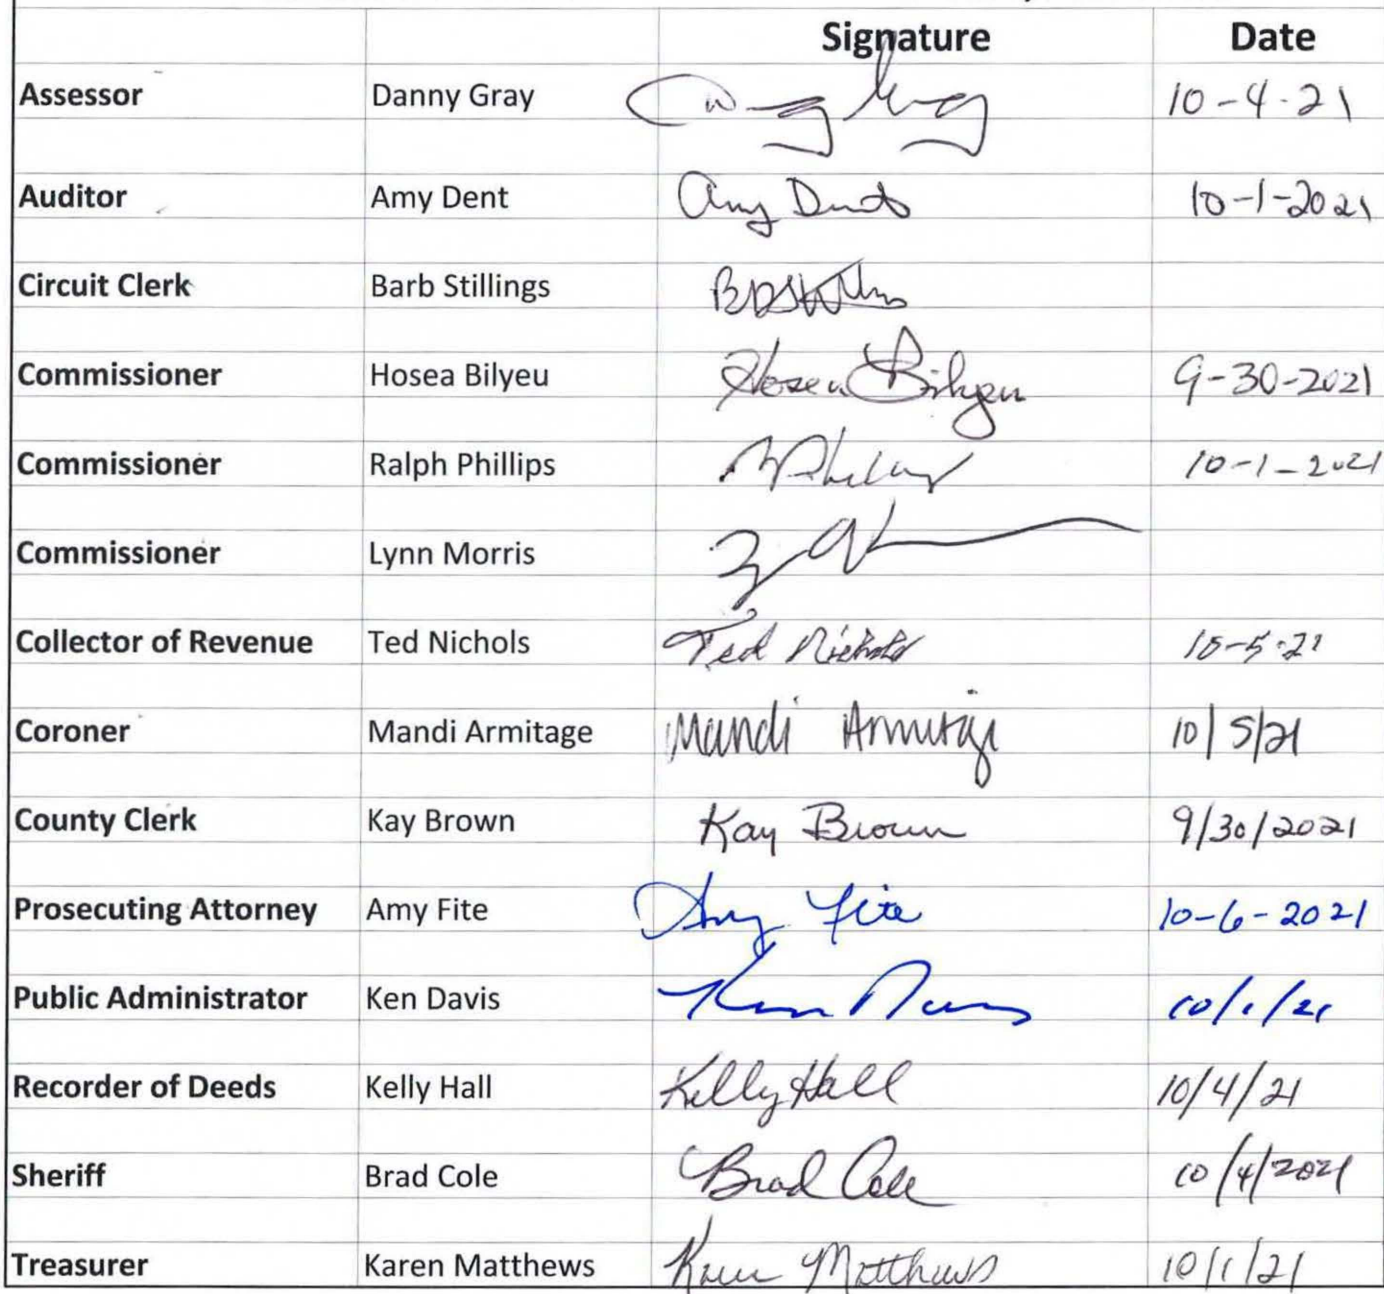 Signature Date
Assessor Danny Gray Danny Gray 10-4-21
Auditor Amy Dent Amy Dent 10-1-2021
Circuit Clerk Barb Stillings
Commissioner Hosea Bilyeu Hosea Bilyeu 9-30-2021
Commissioner Ralph Phillips 10-1-2021
Commissioner Lynn Morris
Collector of Revenue Ted Nichols Ted Nichols 10-5-21
Coroner Mandi Armitage Mandi Armitage 10/5/21
County Clerk Kay Brown Kay Brown 9/30/2021
Prosecuting Attorney Amy Fite Amy Fite 10-6-2021
Public Administrator Ken Davis Ken Davis 10/1/21
Recorder of Deeds Kelly Hall Kelly Hall 10/4/21
Sheriff Brad Cole Brad Cole 10/4/2021
Treasurer Karen Matthews Karen Matthews 10/1/21